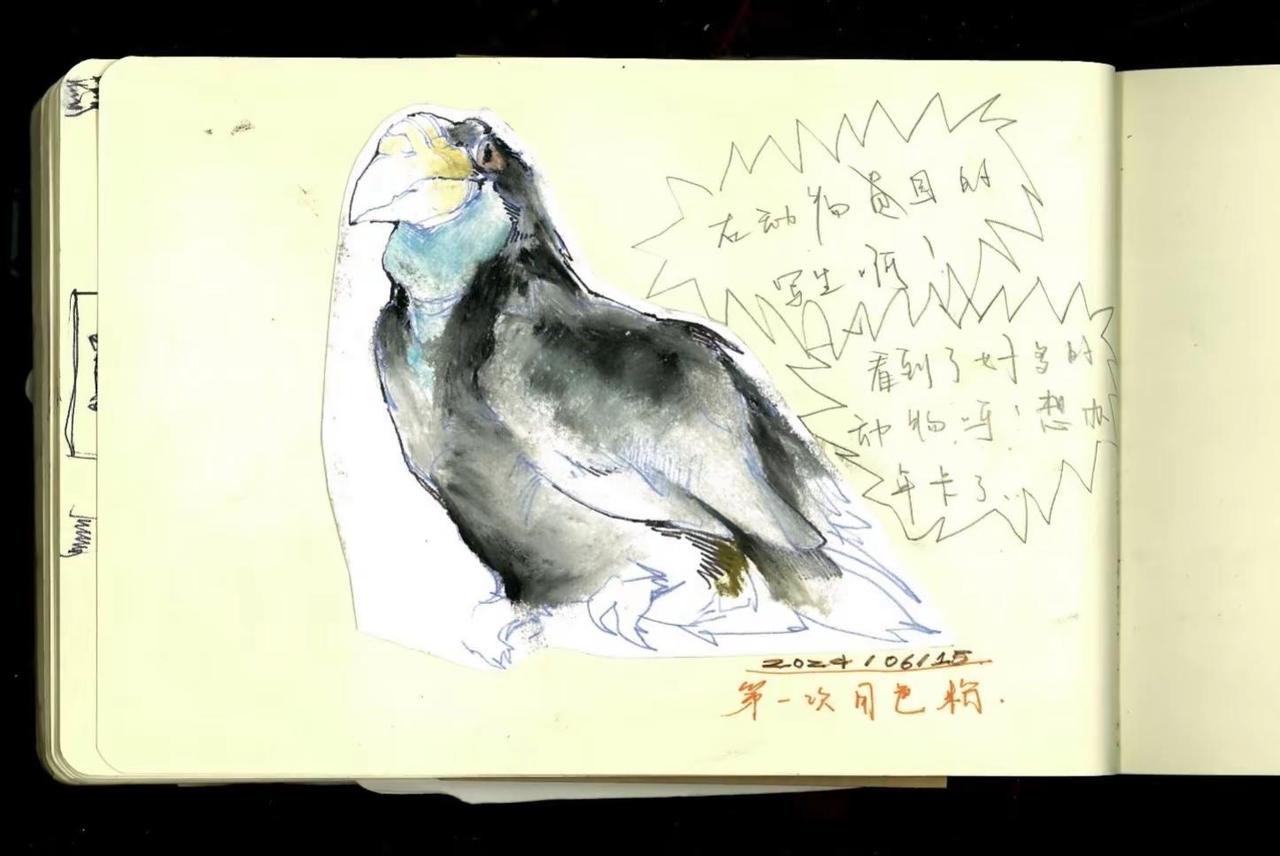 在动物园目的
写生啊！
看到了好多的
动物呀！想办
年卡了..
2024/06/15
第一次用色粉.